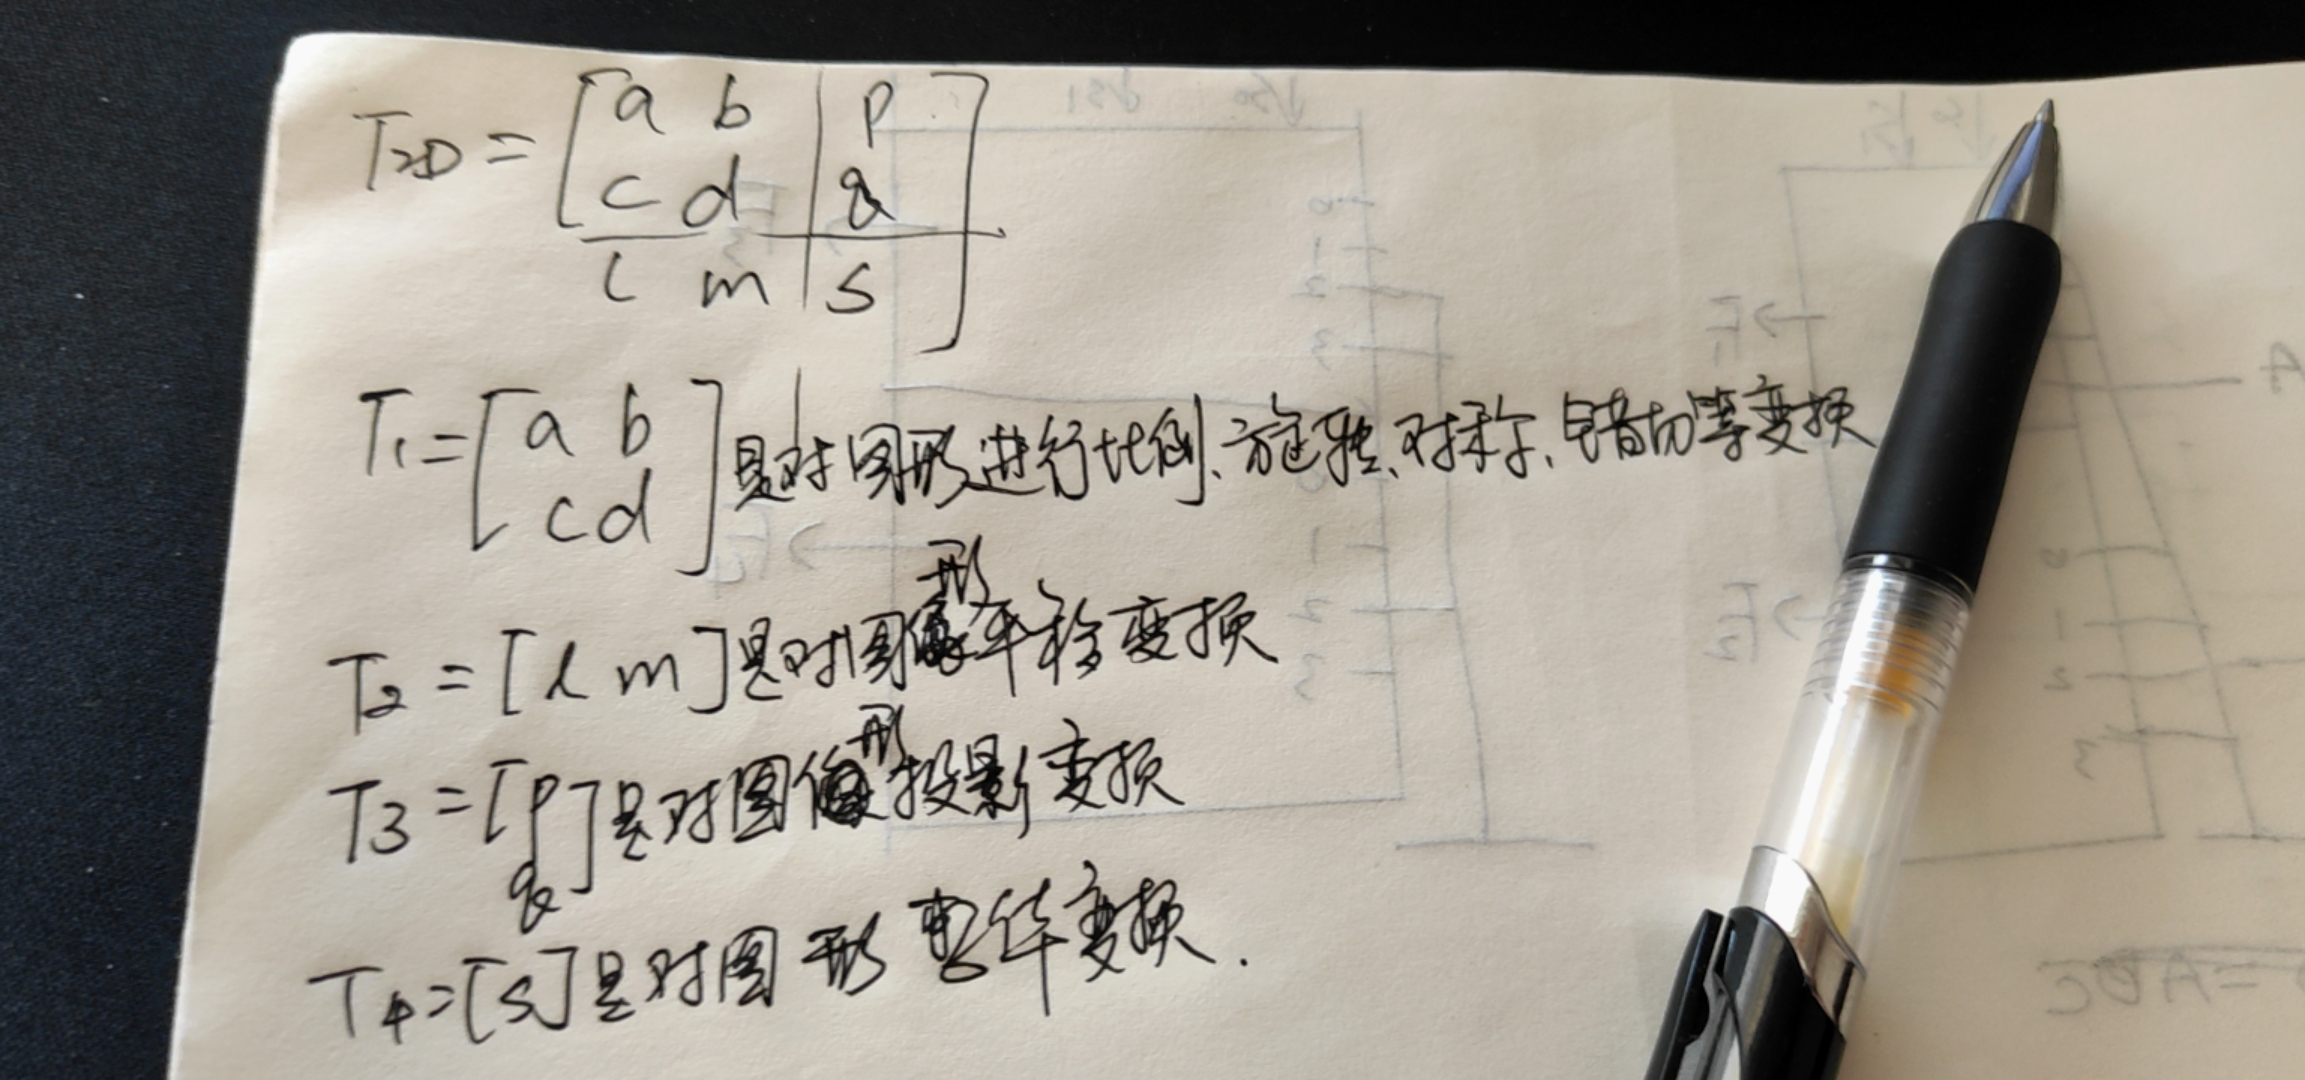 T2D = [a b | p
c d | q
l m | s]
T1 = [a b
c d] 是对图形进行比例、旋转、对称、错切等变换
T2 = [l m] 是对图形平移变换
T3 = [p
q] 是对图形投影变换
T4 = [s] 是对图形整体变换.